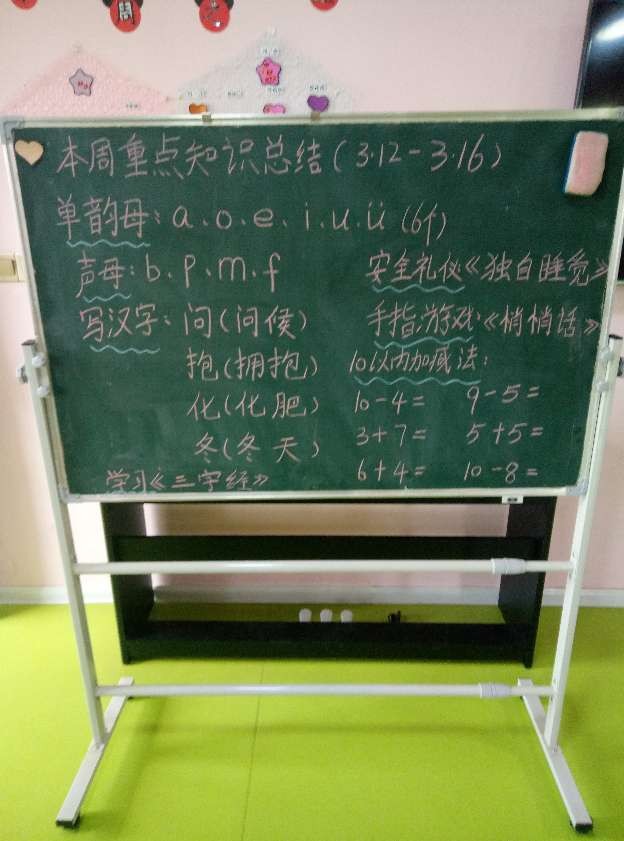 周
本周重点知识总结(3.12-3.16)
单韵母:a、o、e、i、u、ü(6个)
声母:b、p、m、f
安全礼仪《独自睡觉》
写汉字:问(问候)
手指游戏:《悄悄话》
抱(拥抱)
10以内加减法:
化(化肥)
10-4= 9-5=
3+7= 5+5=
冬(冬天)
6+4= 10-8=
学习《三字经》